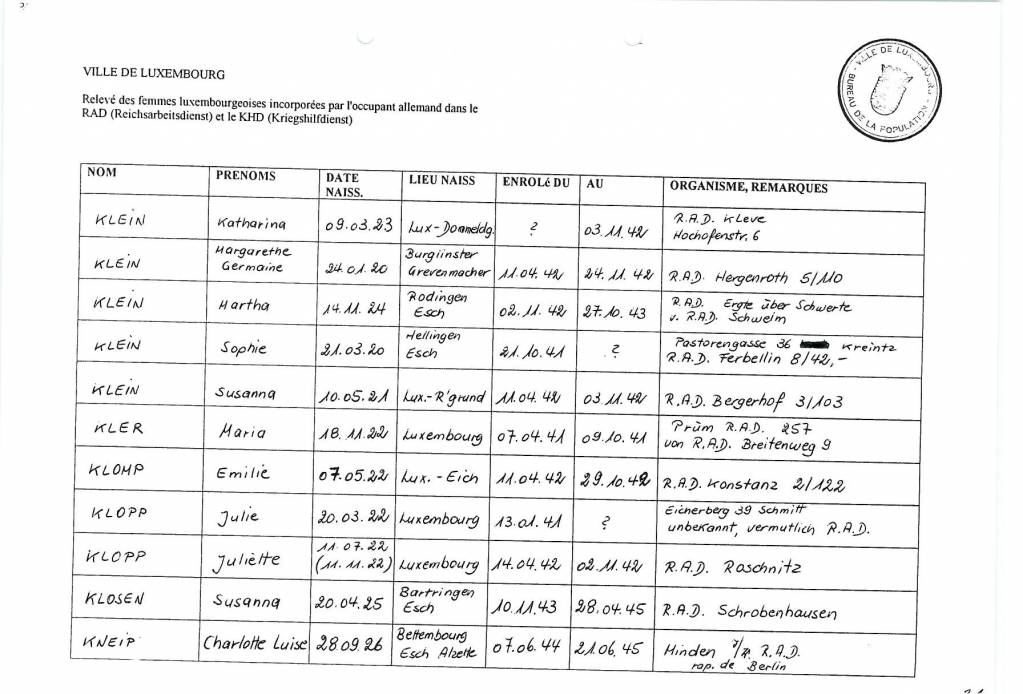 VILLE DE LUXEMBOURG
VILLE DE LUXEMBOURG - BUREAU DE LA POPULATION
Relevé des femmes luxembourgeoises incorporées par l'occupant allemand dans le
RAD (Reichsarbeitsdienst) et le KHD (Kriegshilfdienst)
NOM PRENOMS DATE NAISS. LIEU NAISS ENROLé DU AU ORGANISME, REMARQUES
KLEIN Katharina 09.03.23 Lux-Dommeldg. ? 03.11.42 R.A.D. Kleve
Hochofenstr. 6
KLEIN Margarethe Germaine 24.01.20 Burglinster Grevenmacher 11.04.42 24.11.42 R.A.D. Hergenroth 5/110
KLEIN Martha 14.11.24 Rodingen Esch 02.11.42 27.10.43 R.A.D. Ergte über Schwerte
v. R.A.D. Schwelm
KLEIN Sophie 21.03.20 Hellingen Esch 21.10.41 ? Pastorengasse 36 Kreintz
R.A.D. Ferbellin 8/42,-
KLEIN Susanna 10.05.21 Lux.-R'grund 11.04.42 03.11.42 R.A.D. Bergerhof 3/103
KLER Maria 18.11.22 Luxembourg 07.04.41 09.10.41 Prüm R.A.D. 257
von R.A.D. Breitenweg 9
KLOMP Emilie 07.05.22 Lux.-Eich 11.04.42 29.10.42 R.A.D. Konstanz 2/122
KLOPP Julie 20.03.22 Luxembourg 13.01.41 ? Eicherberg 39 Schmitt
unbekannt, vermutlich R.A.D.
KLOPP Juliette 11.07.22 (11.11.22) Luxembourg 14.04.42 02.11.42 R.A.D. Roschnitz
KLOSEN Susanna 20.04.25 Bartringen Esch 10.11.43 28.04.45 R.A.D. Schrobenhausen
KNEIP Charlotte Luise 28.09.26 Bettembourg Esch Alzette 07.06.44 21.06.45 Minden R.A.D.
rap. de Berlin